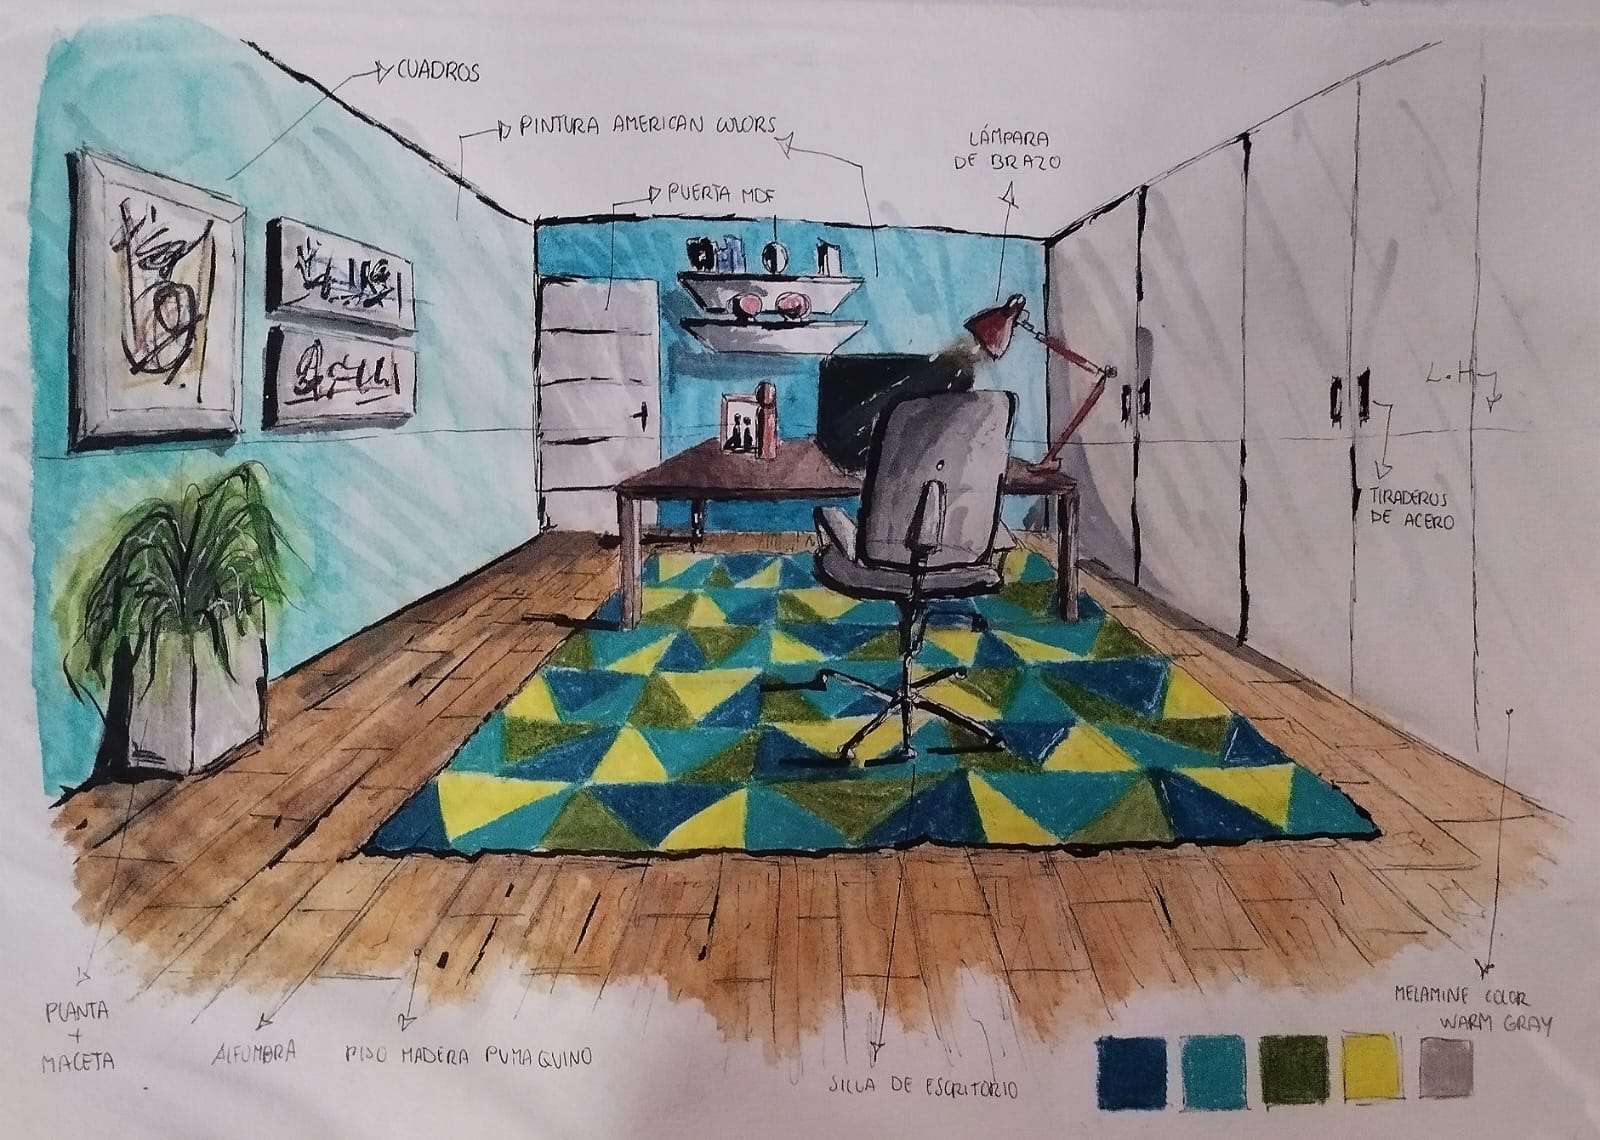 CUADROS
PINTURA AMERICAN COLORS
LÁMPARA
DE BRAZO
PUERTA MDF
TIRADEROS
DE ACERO
PLANTA
+
MACETA
ALFOMBRA
PISO MADERA PUMAQUINO
SILLA DE ESCRITORIO
MELAMINE COLOR
WARM GRAY